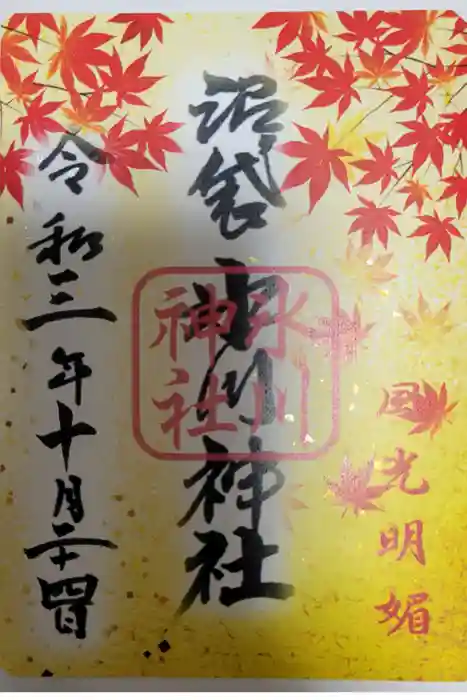 国光明媚
沼袋 氷川神社
氷川
神社
令和三年十月二十四日